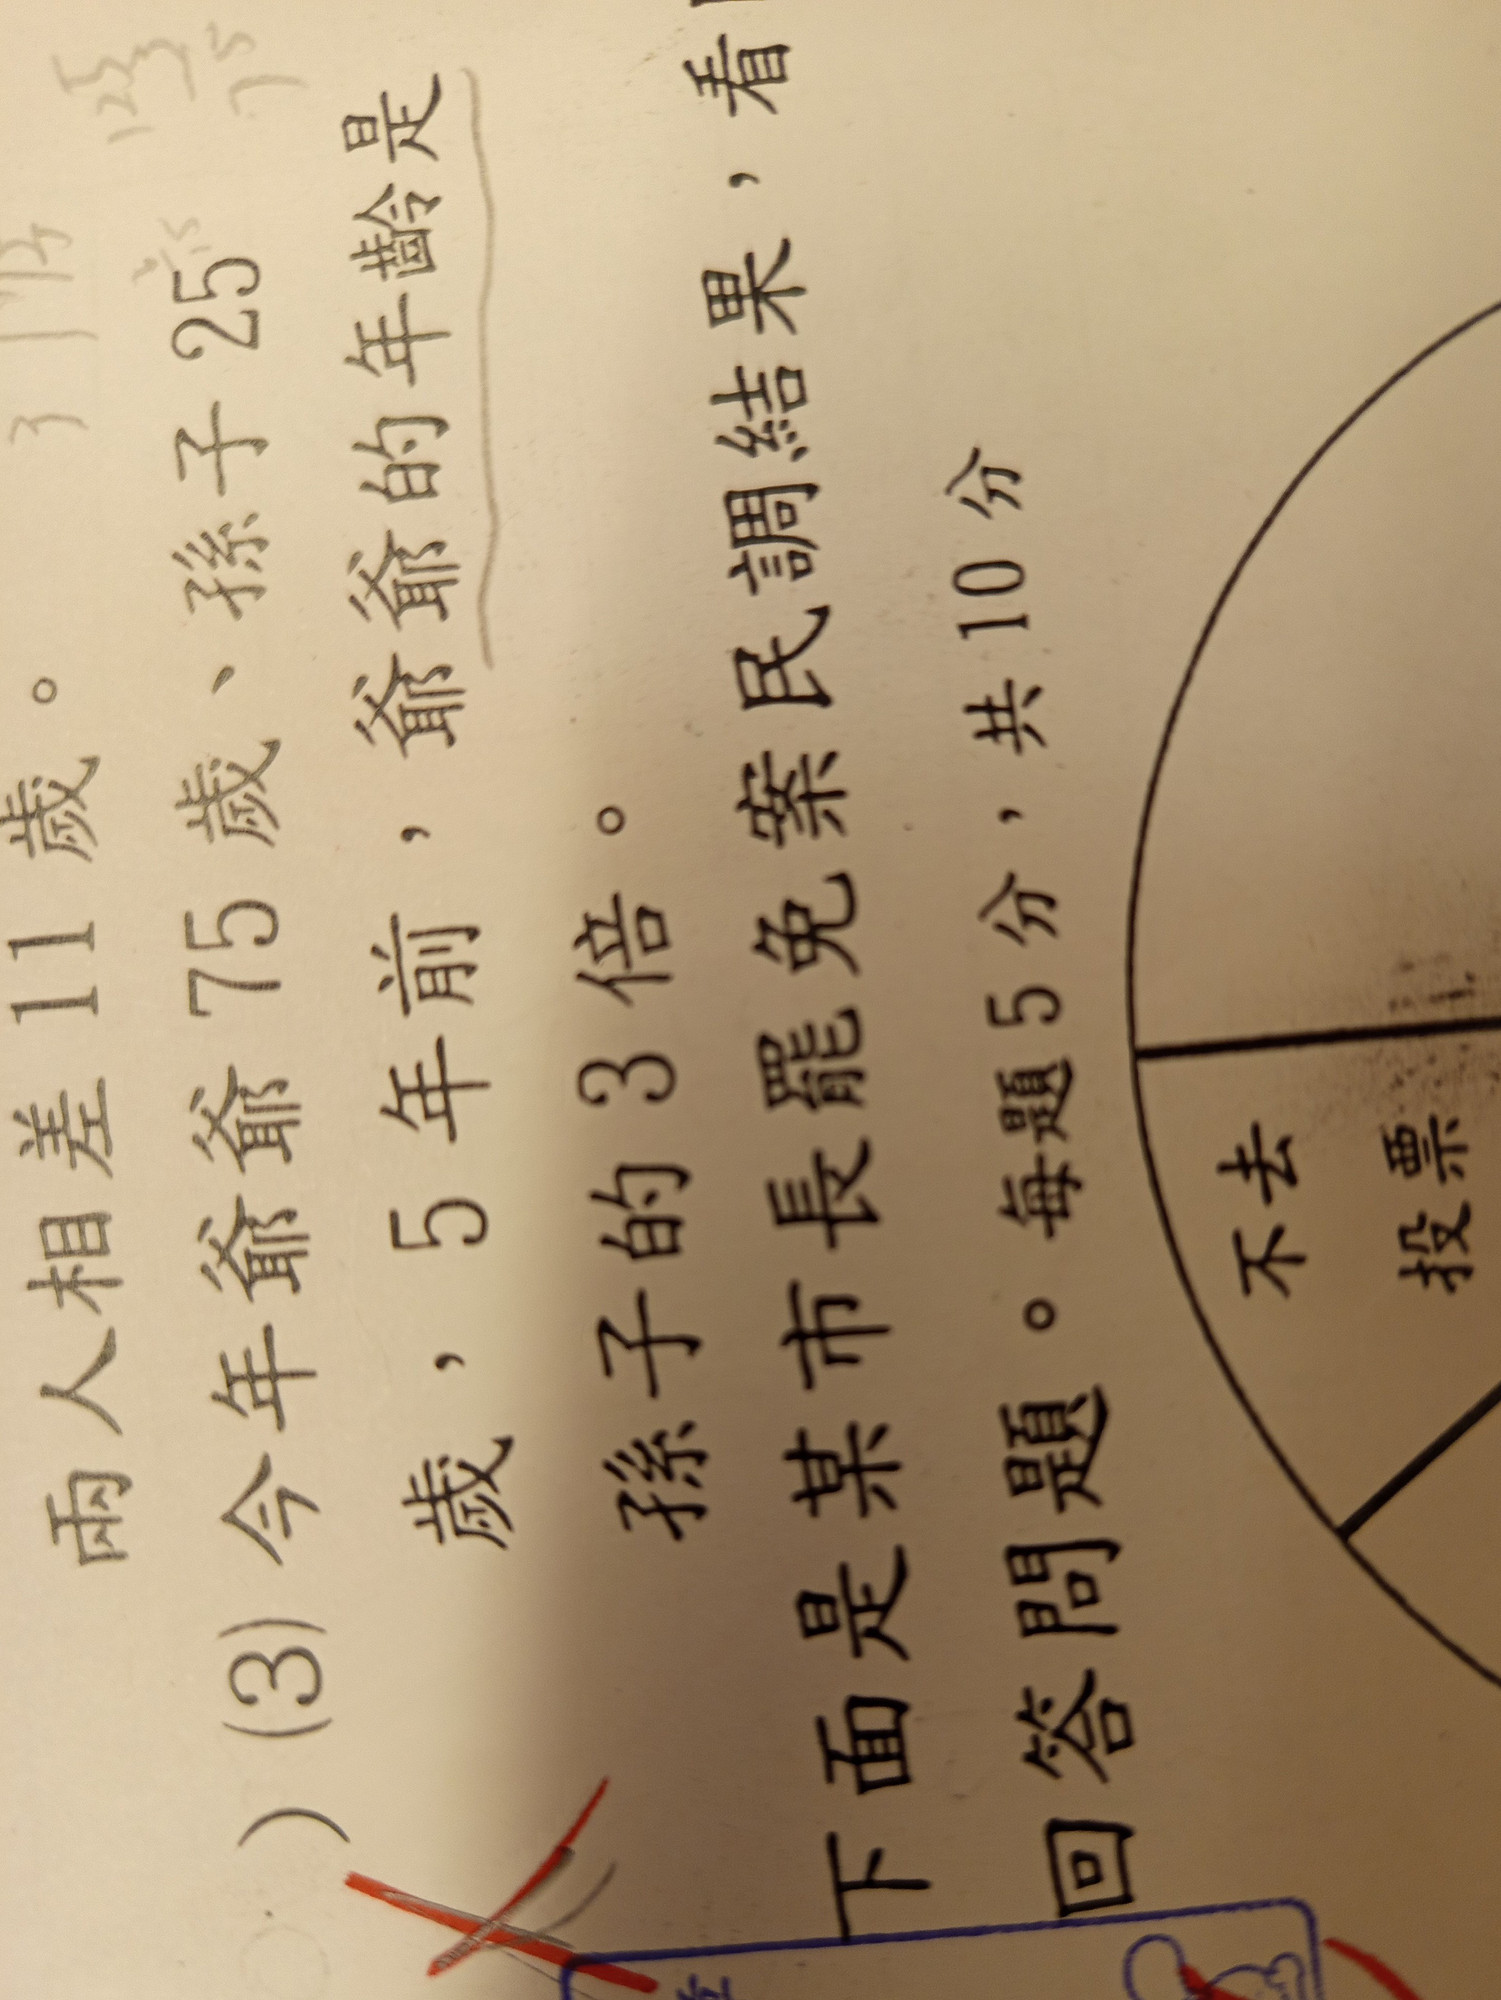 兩人相差 11 歲。
) (3) 今年爺爺 75 歲、孫子 25
歲，5 年前，爺爺的年齡是
孫子的 3 倍。
下面是某市長罷免案民調結果，看
回答問題。每題 5 分，共 10 分
不去
投票